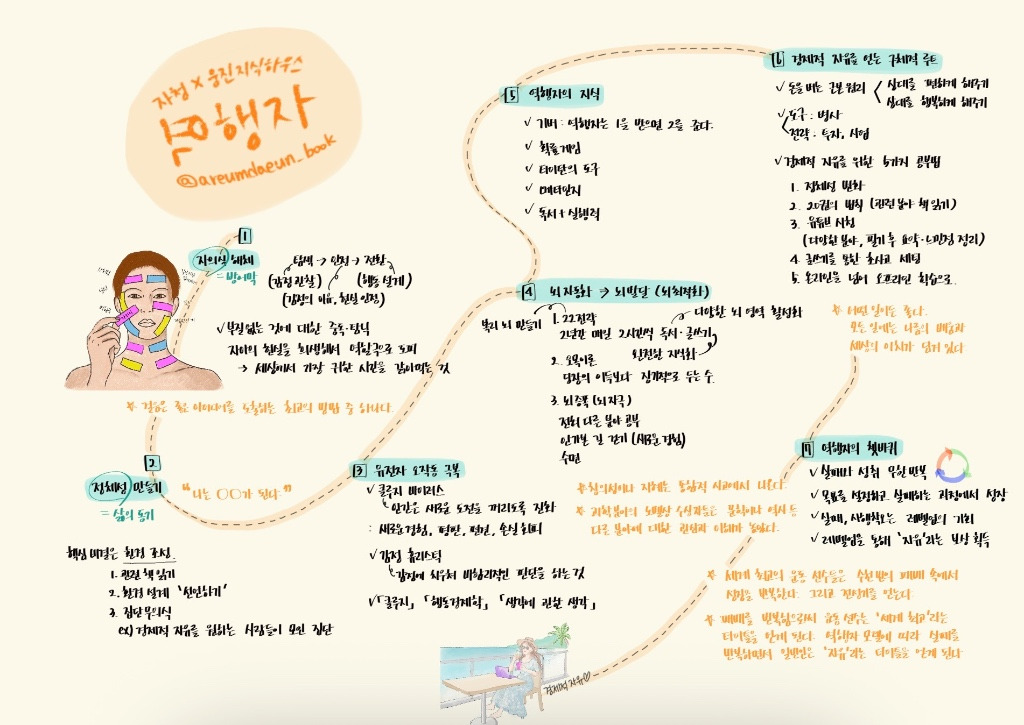 자청 X 웅진지식하우스
역행자
@areumdaeun_book
1
자의식 해체
= 방어막
탐색 → 인정 → 전환
(감정 관찰)
(행동 설계)
(감정의 이유, 현실 인정)
✓ 부질없는 것에 대한 중독·탐닉
자아의 현실을 희생해서 영원으로 도피
→ 세상에서 가장 귀한 시간을 갉아먹는 것
☆ 걷는은 좋은 아이디어를 도출하는 최고의 방법 중 하나다.
2
정체성 만들기
"나는 ○○가 된다."
= 삶의 동기
핵심 비결은 환경 조성
1. 관련 책 읽기
2. 환경 설계 '선언하기'
3. 집단무의식
ex) 경제적 자유를 원하는 사람들이 모인 집단
3 유전자 오작동 극복
✓ 클루지 바이러스
인간은 새로운 도전을 꺼리도록 진화
: 새로운경험, 평판, 편견, 손실회피
✓ 감정 휴리스틱
감정에 치우쳐 비합리적인 판단을 하는 것
✓「클루지」「행동경제학」「생각에 관한 생각」
4 뇌 자동화 → 뇌 발달 (뇌 최적화)
복리 뇌 만들기
1. 22전략
2년간 매일 2시간씩 독서·글쓰기
다양한 뇌 영역 활성화
완전한 지식화
2. 오목이론
당장의 이득보다 장기적으로 두는 수.
3. 뇌 증폭 (뇌 자극)
전혀 다른 분야 공부
안가본 길 걷기 (새로운 경험)
수면
5 역행자의 지식
✓ 기버 : 역행자는 1을 받으면 2를 준다.
✓ 확률게임
✓ 타이탄의 도구
✓ 메타인지
✓ 독서 + 실행력
6 경제적 자유를 얻는 구체적 루트
✓ 돈을 버는 근본 원리
상대를 편하게 해주기
상대를 행복하게 해주기
✓ 도구 : 병사
전략 : 투자, 사업
✓ 경제적 자유를 위한 5가지 공부법
1. 정체성 변화
2. 20권의 법칙 (관련 분야 책 읽기)
3. 유튜브 시청
(다양한 분야, 필기 후 요약·노션등 정리)
4. 글쓰기를 통한 초사고 세팅
5. 온라인을 넘어 오프라인 학습으로.
☆ 어떤 일이든 좋다.
모든 일에는 나름의 배움과
세상의 이치가 담겨 있다
7 역행자의 쳇바퀴
✓ 실패와 성취 무한 반복
✓ 목표를 설정하고 실패하는 과정에서 성장
✓ 실패, 시행착오는 레벨업의 기회
✓ 레벨업을 통해 '자유'라는 보상 획득
☆ 창의성이나 지혜는 통합적 사고에서 나온다.
☆ 과학분야의 노벨상 수상자들은 문학이나 역사 등
다른 분야에 대한 관심과 이해가 높았다.
☆ 세계 최고의 운동 선수들은 수천 번의 패배 속에서
성장을 반복한다. 그리고 전성기를 맞는다.
☆ 패배를 반복함으로써 운동 선수는 '세계 최고'라는
타이틀을 얻게 된다. 역행자 모델에 따라 실패를
반복하면서 일반인은 '자유'라는 타이틀을 얻게 된다
경제적 자유♡